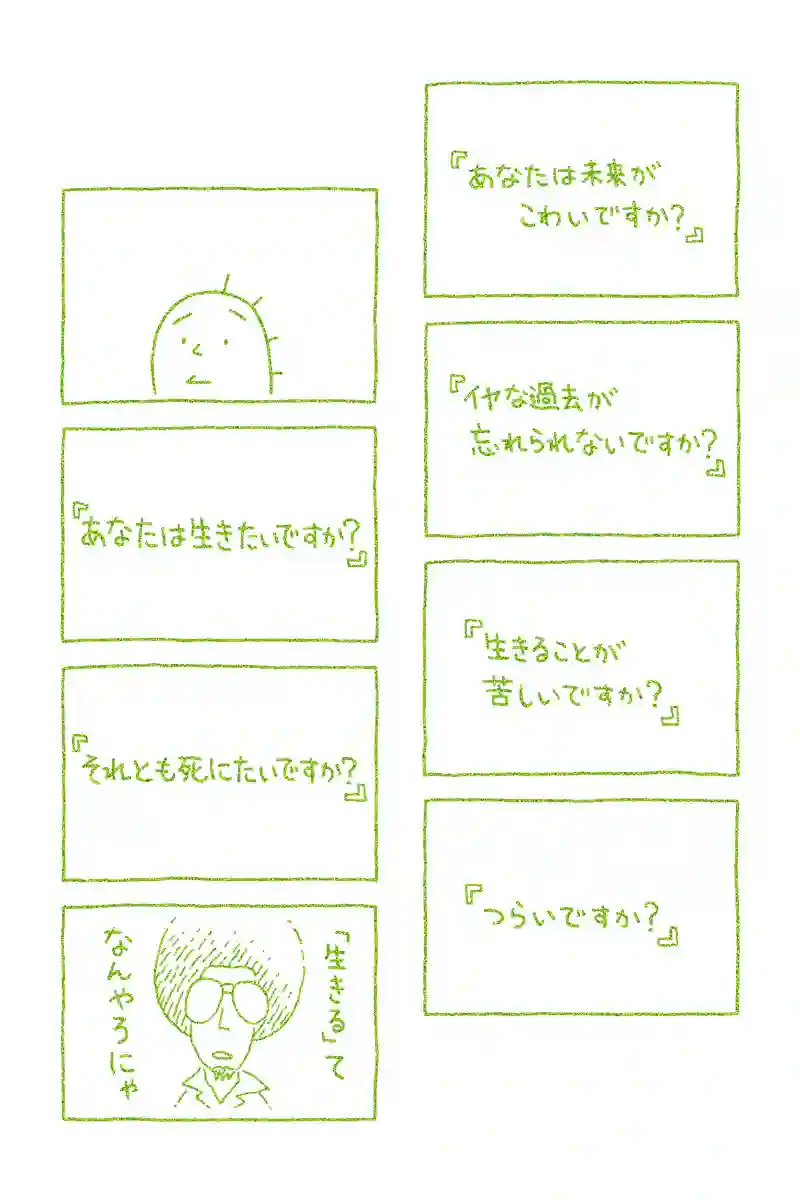 『あなたは未来が
こわいですか?』
『イヤな過去が
忘れられないですか?』
『生きることが
苦しいですか?』
『つらいですか?』
『あなたは生きたいですか?』
『それとも死にたいですか?』
「生きる」て
なんやろにゃ